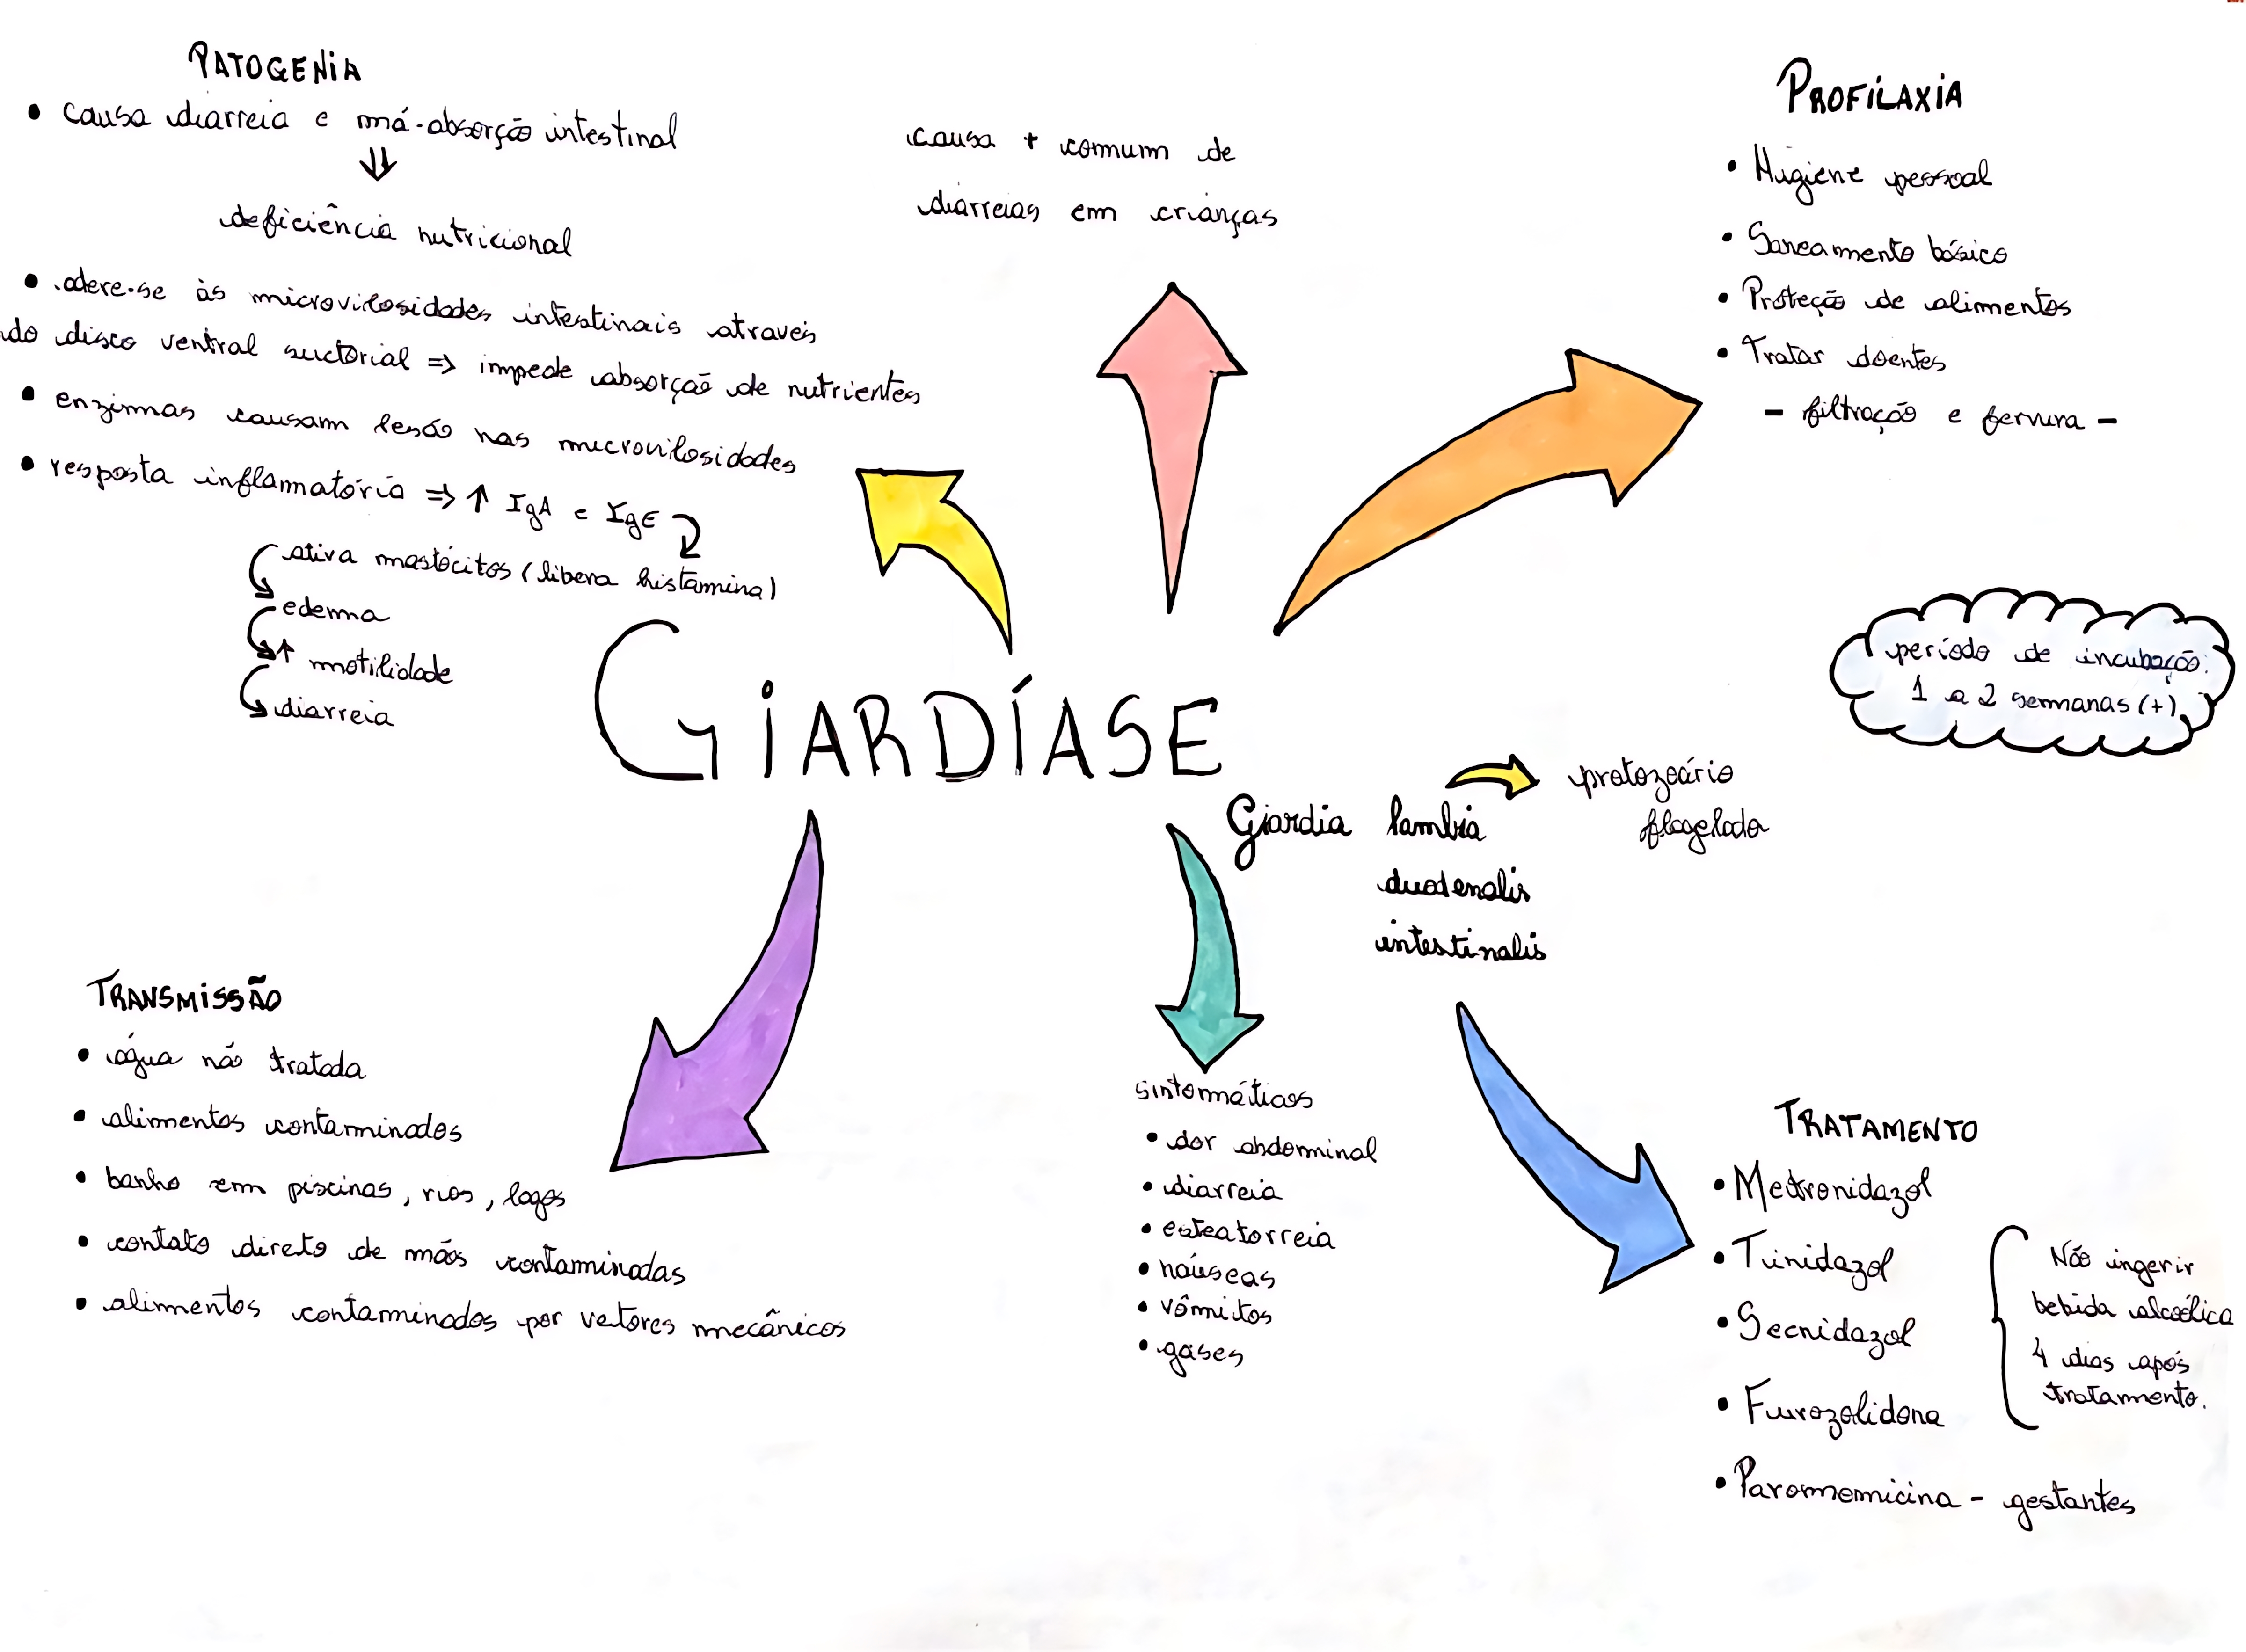 PATOGENIA
• causa diarreia e má-absorção intestinal
⇓
deficiência nutricional
• adere-se às microvilosidades intestinais através
do disco ventral suctorial ⇒ impede absorção de nutrientes
• enzimas causam lesão nas microvilosidades
• resposta inflamatória ⇒ ↑ IgA e IgE
ativa mastócitos (libera histamina)
edema
↑ motilidade
diarreia
causa + comum de
diarreias em crianças
PROFILAXIA
• Higiene pessoal
• Saneamento básico
• Proteção de alimentos
• Tratar doentes
- filtração e fervura -
período de incubação:
1 a 2 semanas (+)
GIARDÍASE
Giardia lamblia
duodenalis
intestinalis
protozoário
flagelado
TRANSMISSÃO
• água não tratada
• alimentos contaminados
• banho em piscinas, rios, lagos
• contato direto de mãos contaminadas
• alimentos contaminados por vetores mecânicos
sintomáticos
• dor abdominal
• diarreia
• esteatorreia
• náuseas
• vômitos
• gases
TRATAMENTO
• Metronidazol
• Tinidazol
• Secnidazol
• Furozolidona
• Paromomicina - gestantes
Não ingerir
bebida alcoólica
4 dias após
tratamento.